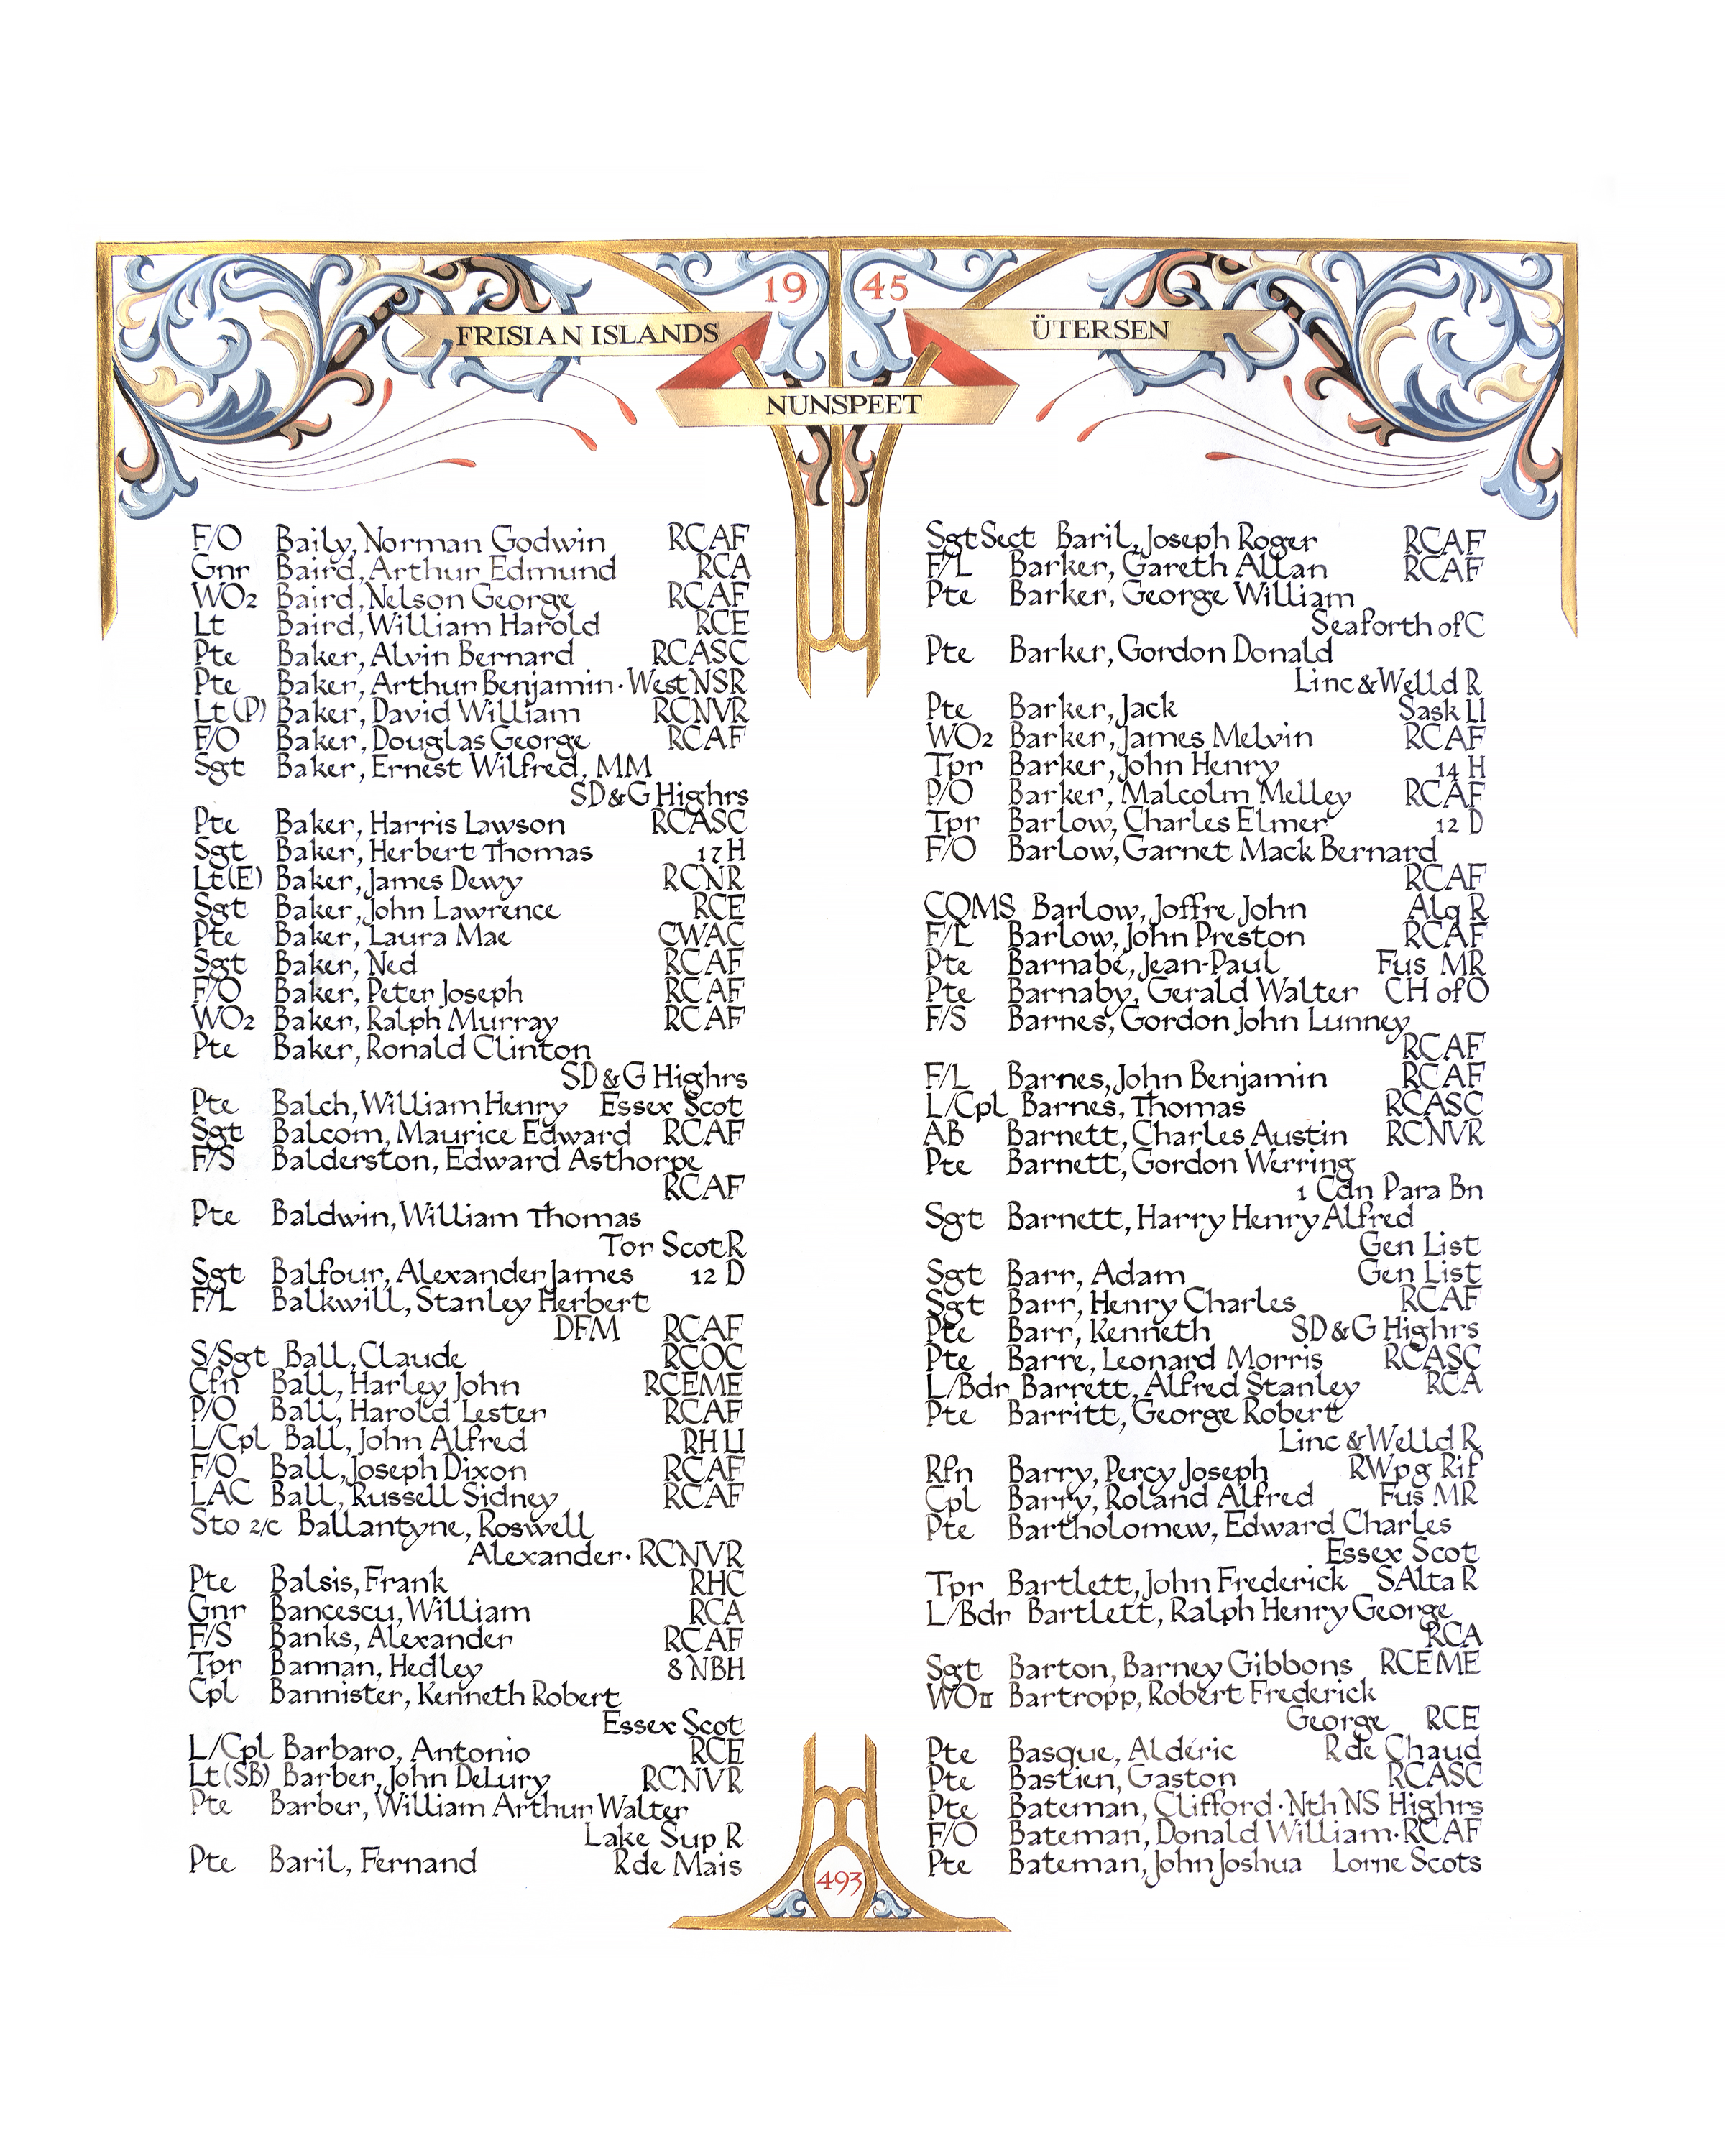 19 45
FRISIAN ISLANDS
ÜTERSEN
NUNSPEET
F/O Baily, Norman Godwin RCAF
Gnr Baird, Arthur Edmund RCA
WO2 Baird, Nelson George RCAF
Lt Baird, William Harold RCE
Pte Baker, Alvin Bernard RCASC
Pte Baker, Arthur Benjamin · West NSR
Lt (P) Baker, David William RCNVR
F/O Baker, Douglas George RCAF
Sgt Baker, Ernest Wilfred, MM
SD & G Highrs
Pte Baker, Harris Lawson RCASC
Sgt Baker, Herbert Thomas 17 H
Lt (E) Baker, James Dewy RCNR
Sgt Baker, John Lawrence RCE
Pte Baker, Laura Mae CWAC
Sgt Baker, Ned RCAF
F/O Baker, Peter Joseph RCAF
WO2 Baker, Ralph Murray RCAF
Pte Baker, Ronald Clinton
SD & G Highrs
Pte Balch, William Henry Essex Scot
Sgt Balcom, Maurice Edward RCAF
F/S Balderston, Edward Asthorpe
RCAF
Pte Baldwin, William Thomas
Tor Scot R
Sgt Balfour, Alexander James 12 D
F/L Balkwill, Stanley Herbert
DFM RCAF
S/Sgt Ball, Claude RCOC
Cfn Ball, Harley John RCEME
P/O Ball, Harold Lester RCAF
L/Cpl Ball, John Alfred RHLI
F/O Ball, Joseph Dixon RCAF
LAC Ball, Russell Sidney RCAF
Sto 2/c Ballantyne, Roswell
Alexander · RCNVR
Pte Balsis, Frank RHC
Gnr Bancescu, William RCA
F/S Banks, Alexander RCAF
Tpr Bannan, Hedley 8 NBH
Cpl Bannister, Kenneth Robert
Essex Scot
L/Cpl Barbaro, Antonio RCE
Lt (SB) Barber, John DeLury RCNVR
Pte Barber, William Arthur Walter
Lake Sup R
Pte Baril, Fernand R de Mais
Sgt Sect Baril, Joseph Roger RCAF
F/L Barker, Gareth Allan RCAF
Pte Barker, George William
Seaforth of C
Pte Barker, Gordon Donald
Linc & Welld R
Pte Barker, Jack Sask LI
WO2 Barker, James Melvin RCAF
Tpr Barker, John Henry 14 H
P/O Barker, Malcolm Melley RCAF
Tpr Barlow, Charles Elmer 12 D
F/O Barlow, Garnet Mack Bernard
RCAF
CQMS Barlow, Joffre John Alq R
F/L Barlow, John Preston RCAF
Pte Barnabé, Jean-Paul Fus MR
Pte Barnaby, Gerald Walter CH of O
F/S Barnes, Gordon John Lunney
RCAF
F/L Barnes, John Benjamin RCAF
L/Cpl Barnes, Thomas RCASC
AB Barnett, Charles Austin RCNVR
Pte Barnett, Gordon Werring
1 Cdn Para Bn
Sgt Barnett, Harry Henry Alfred
Gen List
Sgt Barr, Adam Gen List
Sgt Barr, Henry Charles RCAF
Pte Barr, Kenneth SD & G Highrs
Pte Barre, Leonard Morris RCASC
L/Bdr Barrett, Alfred Stanley RCA
Pte Barritt, George Robert
Linc & Welld R
Rfn Barry, Percy Joseph RWpg Rif
Cpl Barry, Roland Alfred Fus MR
Pte Bartholomew, Edward Charles
Essex Scot
Tpr Bartlett, John Frederick SAlta R
L/Bdr Bartlett, Ralph Henry George
RCA
Sgt Barton, Barney Gibbons RCEME
WO II Bartropp, Robert Frederick
George RCE
Pte Basque, Aldéric R de Chaud
Pte Bastien, Gaston RCASC
Pte Bateman, Clifford · Nth NS Highrs
F/O Bateman, Donald William · RCAF
Pte Bateman, John Joshua Lorne Scots
493